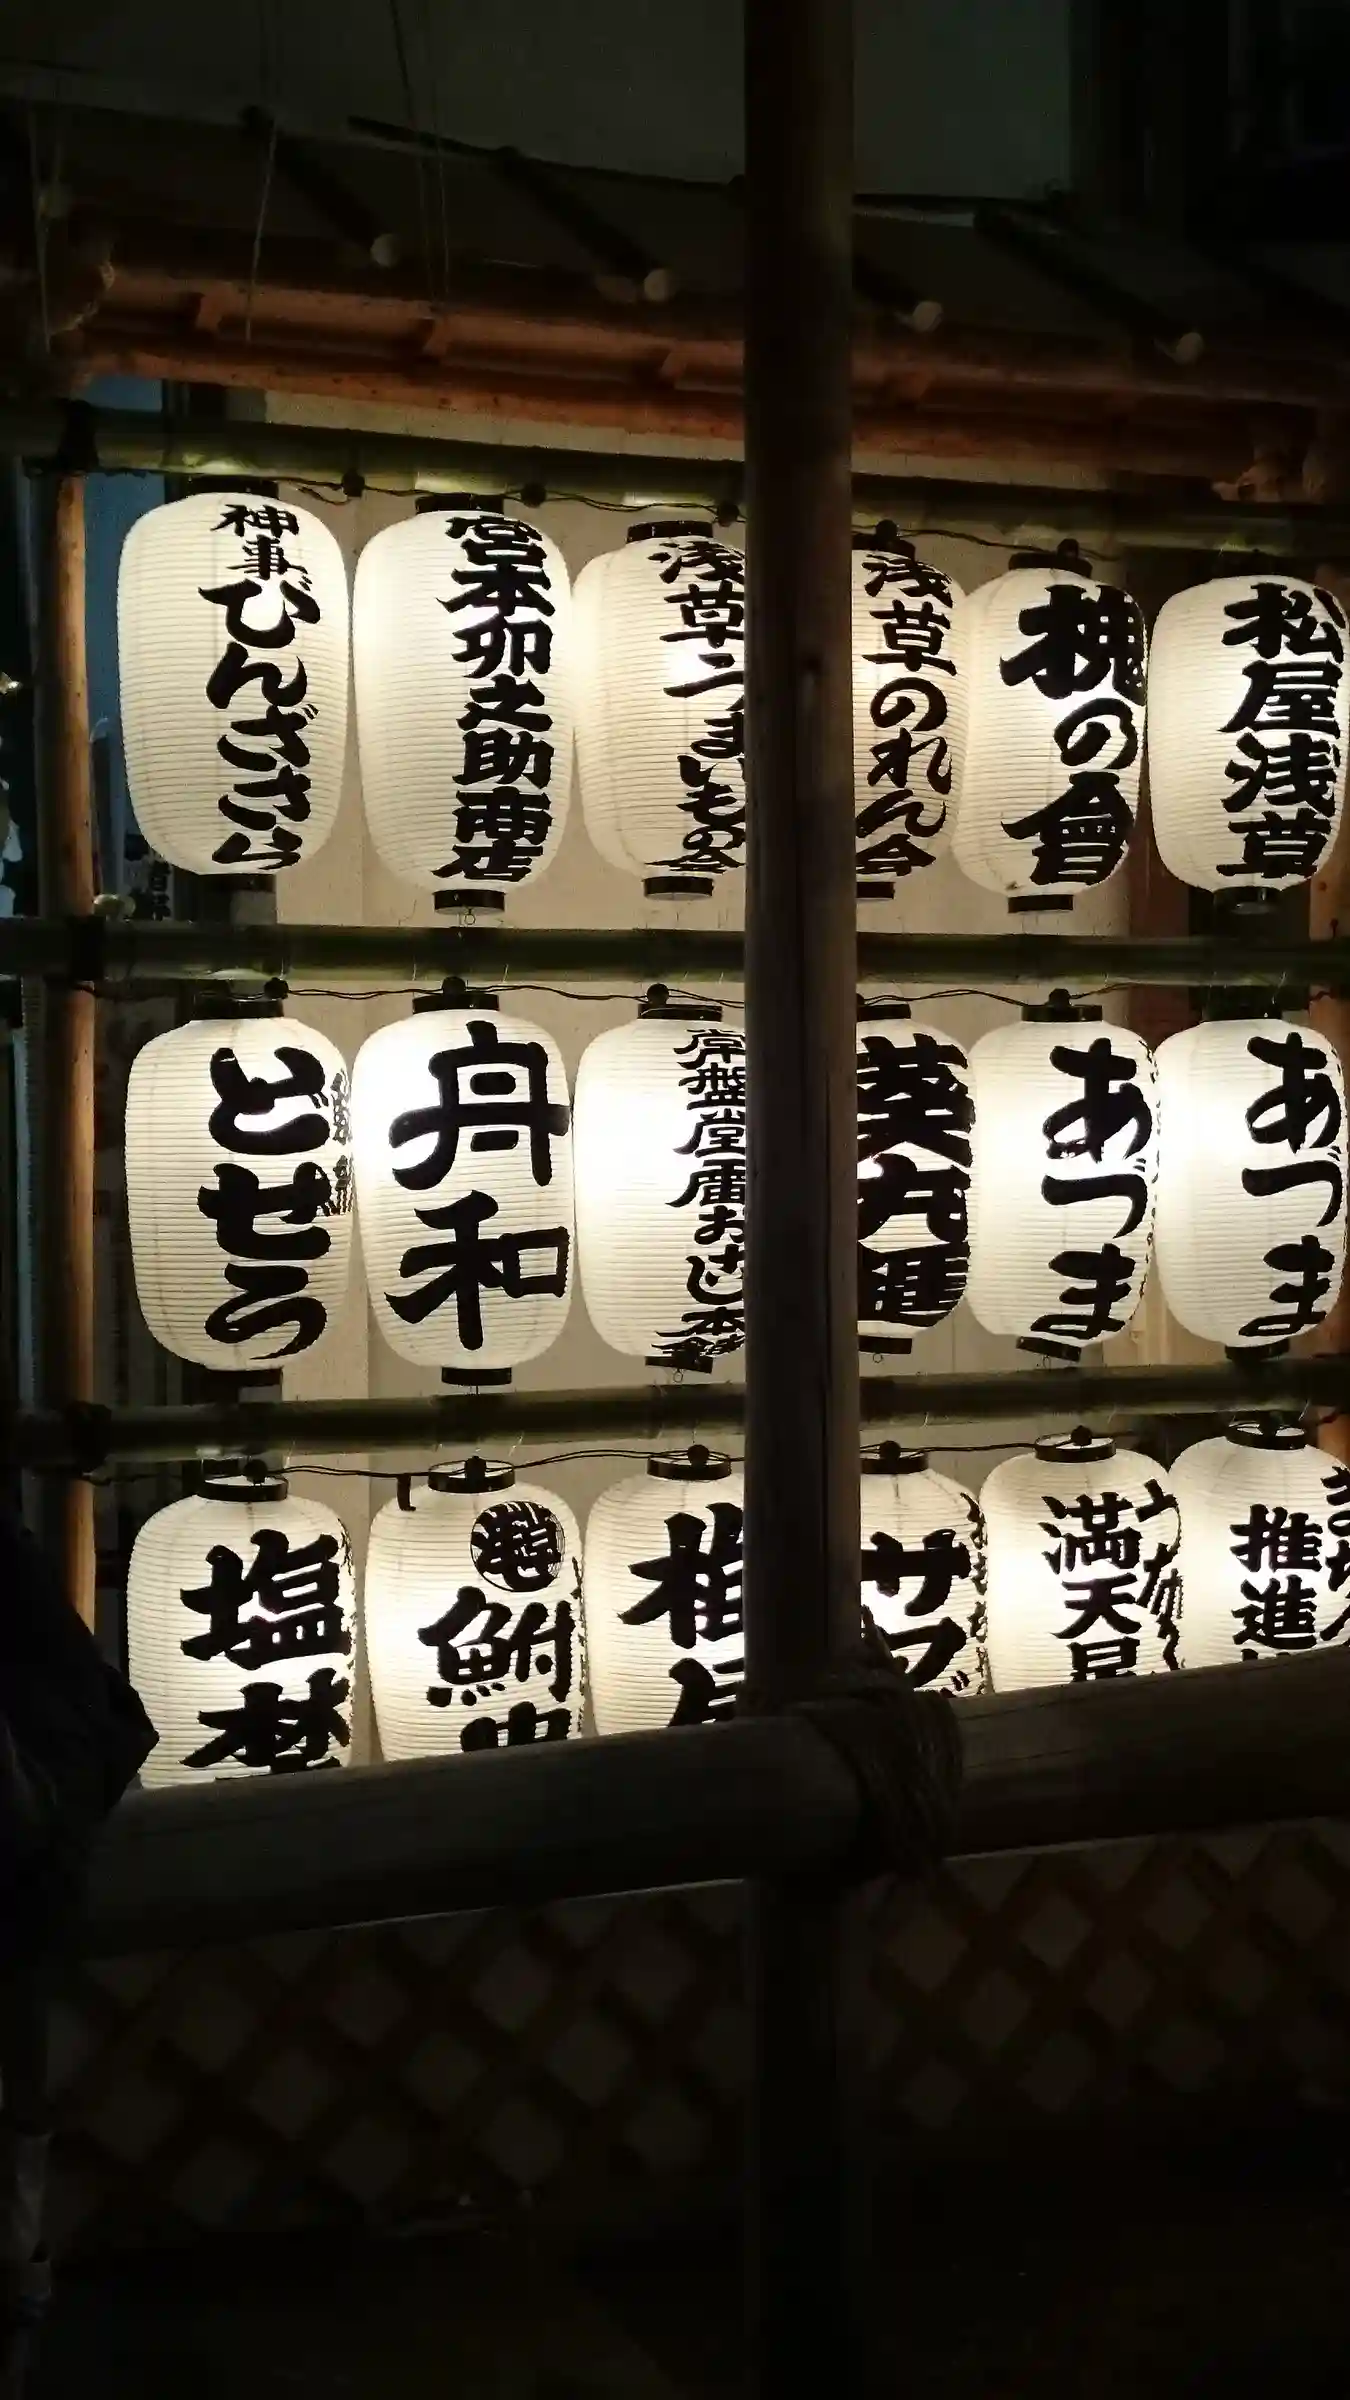 神事びんざさら
宮本卯之助商店
浅草うまいもの会
浅草のれん会
槐の會
松屋浅草
どぜう
舟和
常盤堂雷おこし本舗
葵丸進
あづま
あづま
塩
鮒
サ
満天星
推進